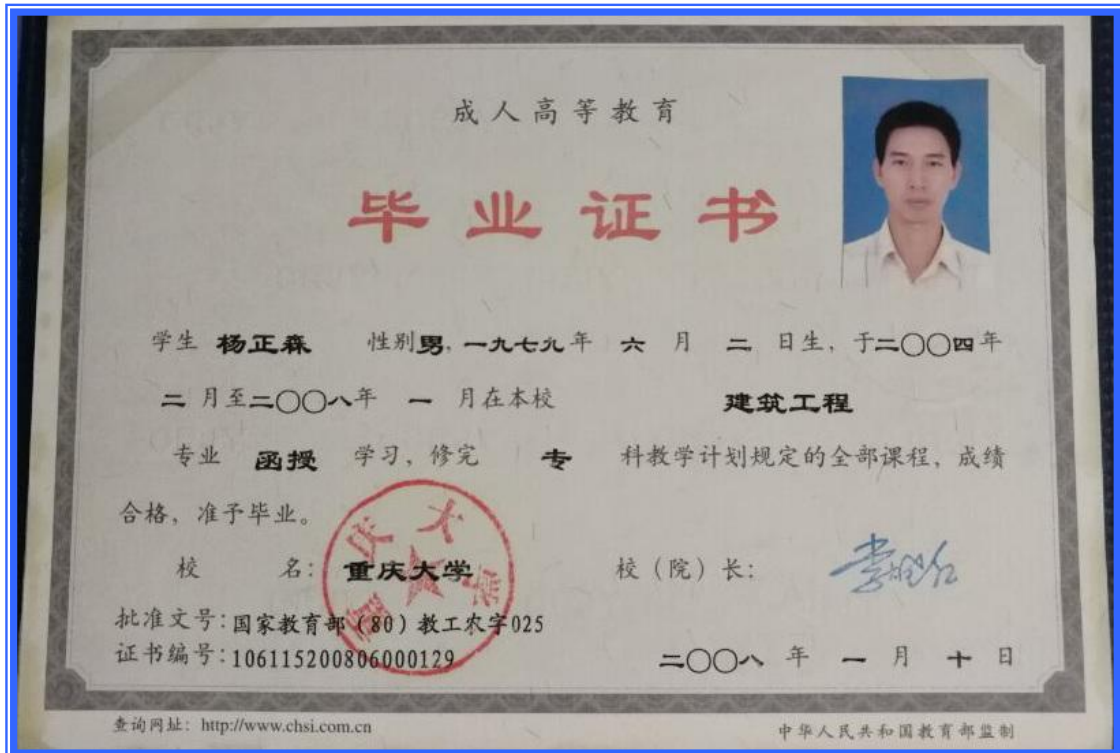 成人高等教育
毕业证书
学生 杨正森 性别男，一九七九年 六 月 二 日生，于二〇〇四年
二 月至二〇〇八年 一 月在本校 建筑工程
专业 函授 学习，修完 专 科教学计划规定的全部课程，成绩
合格，准予毕业。
重庆大学
校 名：重庆大学 校（院）长：
批准文号：国家教育部（80）教工农字025
证书编号：106115200806000129
二〇〇八 年 一 月 十 日
查询网址：http://www.chsi.com.cn 中华人民共和国教育部监制